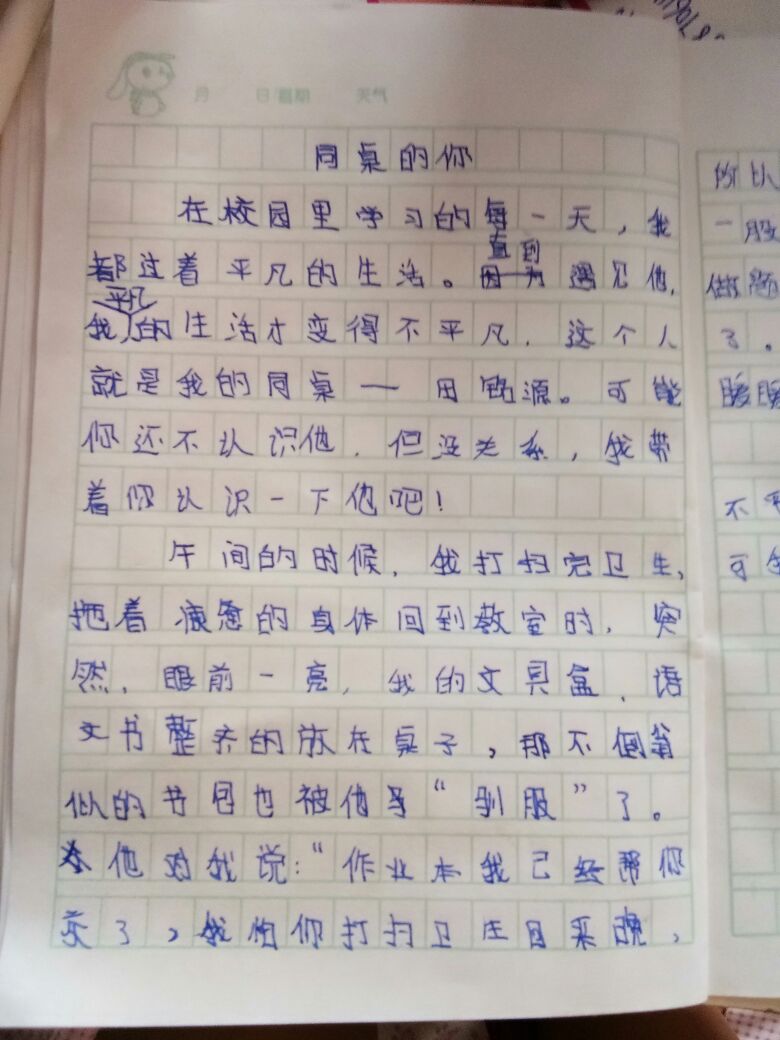 月 日 星期 天气
同桌的你
在校园里学习的每一天，我
都过着平凡的生活。直到遇见他，
我平凡的生活才变得不平凡，这个人
就是我的同桌——田 源。可能
你还不认识他，但没关系，我带
着你认识一下他吧！
午间的时候，我打扫完卫生，
拖着疲惫的身体回到教室时，突
然，眼前一亮，我的文具盒、语
文书整齐的放在桌子，那不倒翁
似的书包也被他 “驯服”了。
他对我说：“作业本我已经帮你
交了，我怕你打扫卫生回来晚，
所以
一股
做题
了。
暖暖
不
可